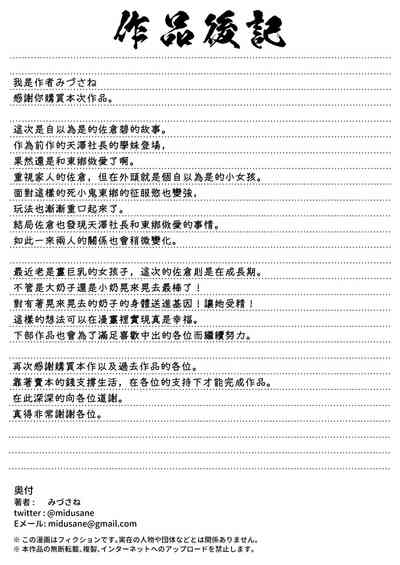 作品後記
我是作者みづさね
感謝你購買本次作品。
這次是自以為是的佐倉碧的故事。
作為前作的天澤社長的學妹登場，
果然還是和東鄉做愛了啊。
重視家人的佐倉，但在外頭就是個自以為是的小女孩。
面對這樣的死小鬼東鄉的征服慾也變強，
玩法也漸漸重口起來了。
結局佐倉也發現天澤社長和東鄉做愛的事情。
如此一來兩人的關係也會稍微變化。
最近老是畫巨乳的女孩子，這次的佐倉則是在成長期。
不管是大奶子還是小奶晃來晃去最棒了！
對有著晃來晃去的奶子的身體送進基因！讓她受精！
這樣的想法可以在漫畫裡實現真是幸福。
下部作品也會為了滿足喜歡中出的各位而繼續努力。
再次感謝購買本作以及過去作品的各位。
靠著賣本的錢支撐生活，在各位的支持下才能完成作品。
在此深深的向各位道謝。
真得非常謝謝各位。
奥付
著者： みづさね
twitter : @midusane
Eメール: midusane@gmail.com
※ この漫画はフィクションです。実在の人物や団体などとは関係ありません。
※ 本作品の無断転載、複製、インターネットへのアップロードを禁止します。